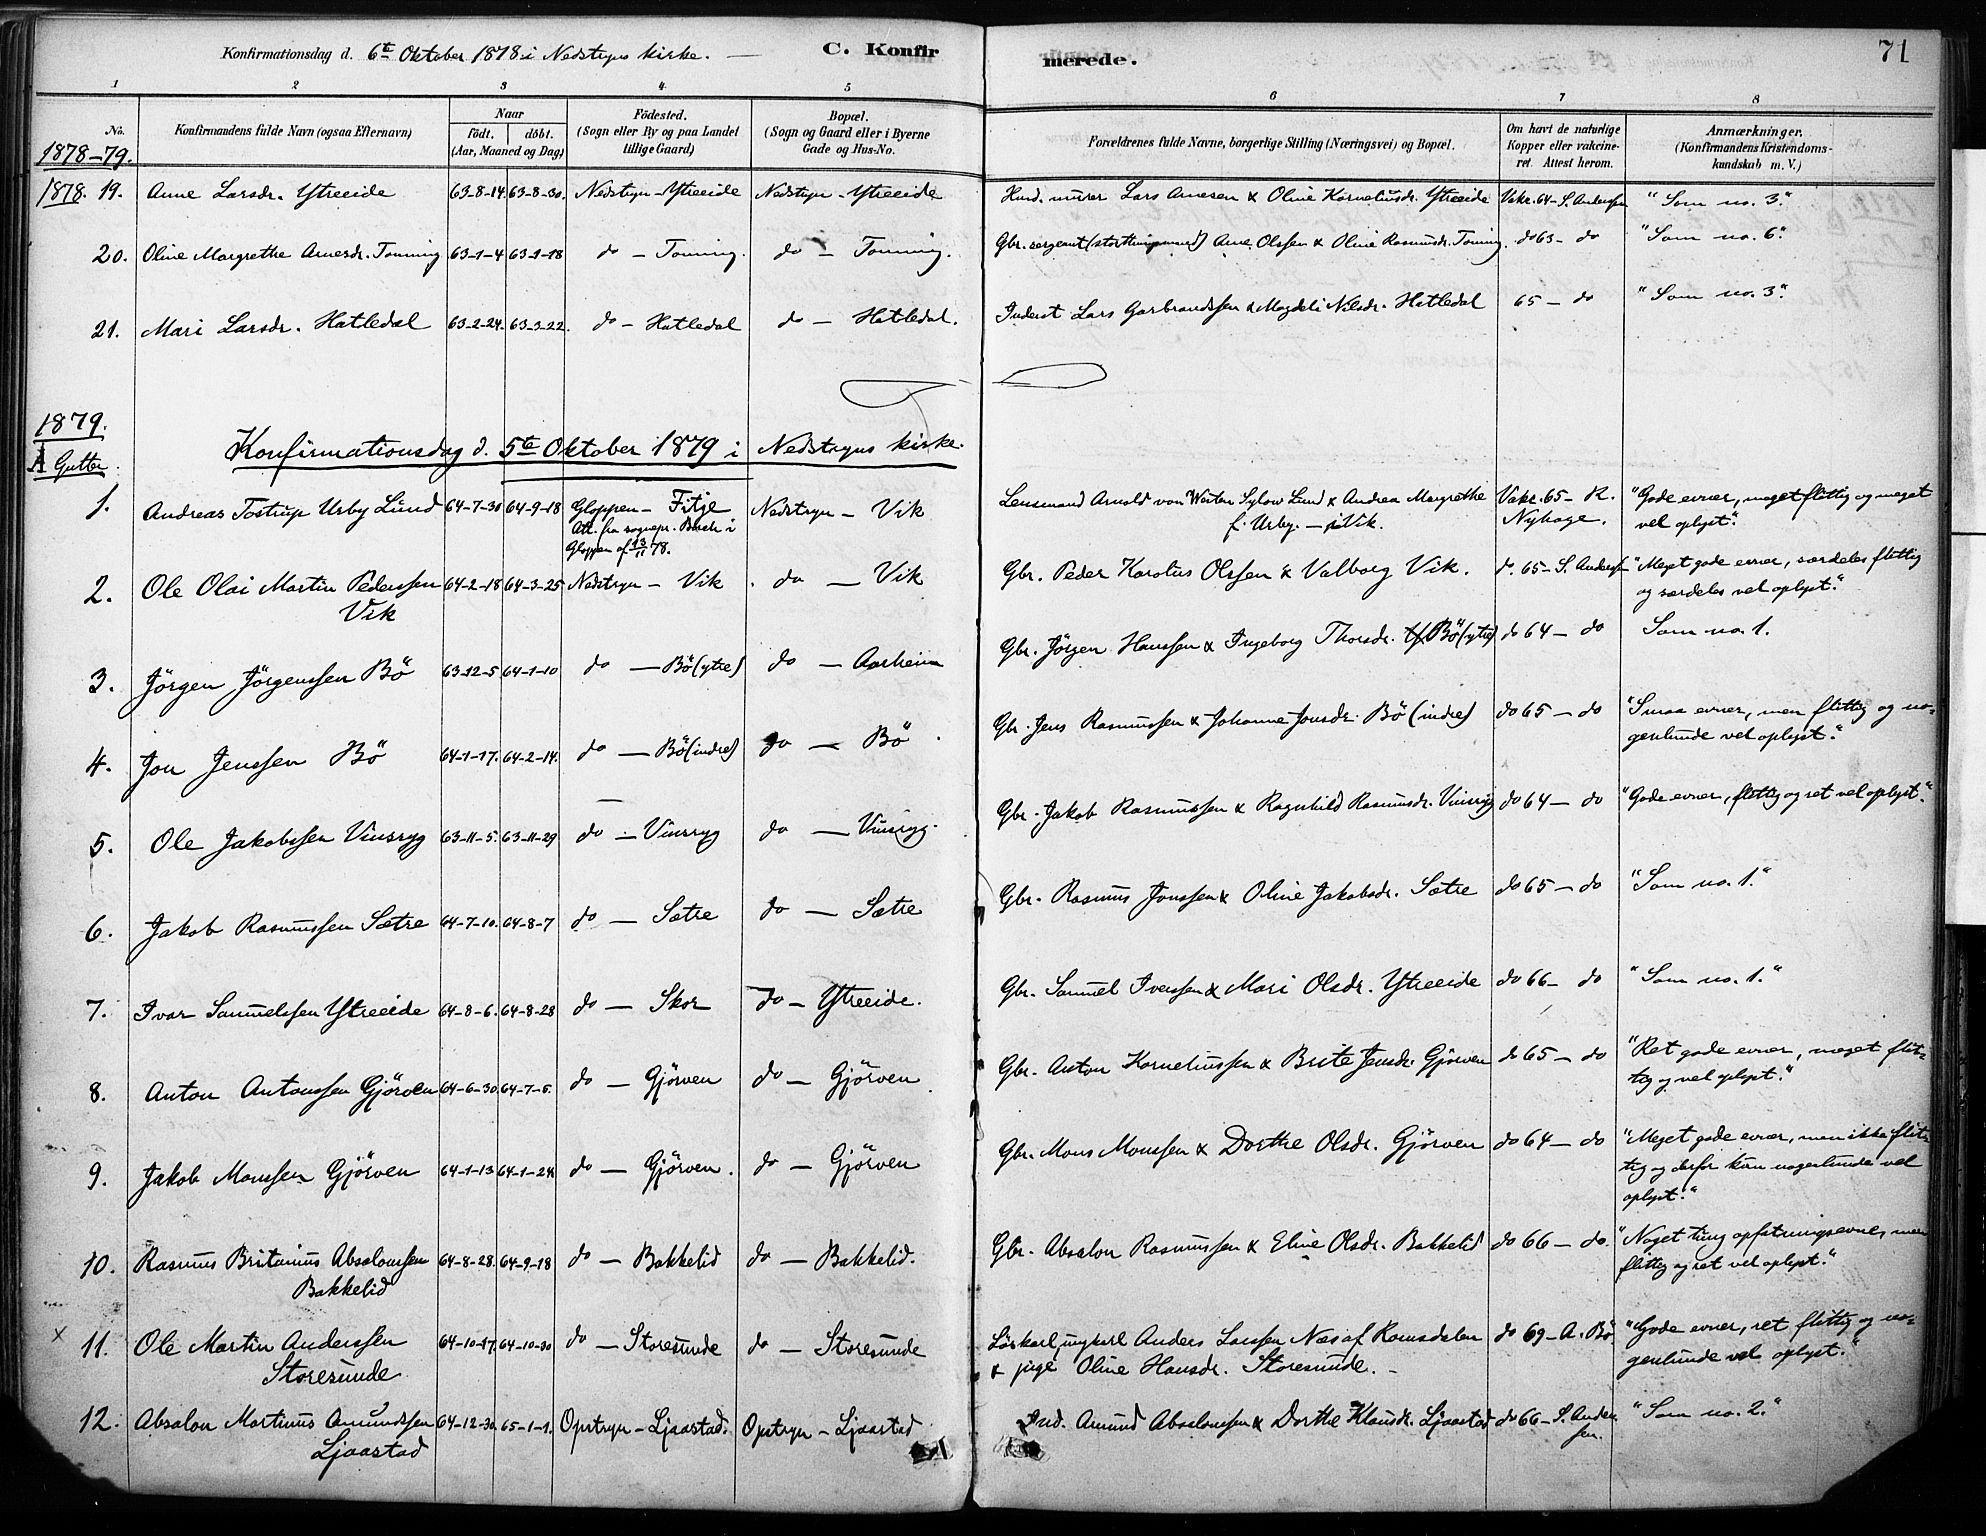 Konfirmationsdag d. 6te Oktober 1878 i Nedstryns kirke. — C. Konfirmerede. 71
1 2 3 4 5 6 7 8
No. Konfirmandens fulde Navn (ogsaa Efternavn) Naar födt. döbt. (Aar, Maaned og Dag) Födested. (Sogn eller By og paa Landet tillige Gaard) Bopæl. (Sogn og Gaard eller i Byerne Gade og Hus-No. Forældrenes fulde Navne, borgerlige Stilling (Næringsvei) og Bopæl. Om havt de naturlige Kopper eller vakcineret. Attest herom. Anmærkninger. (Konfirmandens Kristendomskundskab m. V.)
1878-79.
1878. 19. Anne Larsdr. Ytreeide 63-8-14. 63-8-30. Nedstryn - Ytreeide Nedstryn - Ytreeide Husd. murer Lars Arnesen & Oline Korneliusdr. Ytreeide Vakc. 64 - S. Anderssen "Som no. 3."
20. Oline Margrethe Arnesdr. Tonning 63-1-4 63-1-18 do - Tonning. do - Tonning. Gbr. sergeant (storthingsmand) Arne Olssen & Oline Rasmusdr. Tonning. do 63 - do "Som no. 6."
21. Mari Larsdr. Hatledal 63-2-24. 63-3-22. do - Hatledal do - Hatledal. Inderst Lars Garbrandssen & Magdeli Nilsdr. Hatledal 65 - do "Som no. 3."
1879.
A Gutter.
Konfirmationsdag d. 5te Oktober 1879 i Nedstryns kirke.
1. Andreas Tostrup Urby Lund 64-7-30 64-9-18 Gloppen - Fitje Nedstryn - Vik Lensmand Arnold von Westen Sylow Lund & Andrea Margrethe Vakc. 65 - R. "Gode evner, meget flittig og meget
Att. fra sognepr. i Gloppen af 13/11 78. f. Urby. - i Vik. Nyhage. vel oplyst."
2. Ole Olai Martin Pederssen 64-2-18 64-3-25 Nedstryn - Vik. do - Vik Gbr. Peder Karolus Olssen & Valborg Vik. do. 65 - S. Anderssen "Meget gode evner, særdeles flittig
Vik og særdeles vel oplyst."
3. Jörgen Jörgenssen Bö 63-12-5 64-1-10 do - Bö (ytre) do - Aarheim Gbr. Jörgen Hanssen & Ingeborg Thorsdr. Bö (ytre) do 64 - do Som no. 1.
4. Jon Jenssen Bö 64-1-17. 64-2-14. do - Bö (indre) do - Bö Gbr. Jens Rasmussen & Johanne Jonsdr. Bö (indre) do 65 - do "Smaa evner, men flittig og no-
genlunde vel oplyst."
5. Ole Jakobssen Vinsryg 63-11-5. 63-11-29 do - Vinsryg do - Vinsryg. Gbr. Jakob Rasmussen & Ragnhild Rasmusdr. Vinsryg do 64 - do "Gode evner, flittig og ret vel oplyst."
6. Jakob Rasmussen Sætre 64-7-10. 64-8-7 do - Sætre do - Sætre Gbr. Rasmus Jonssen & Oline Jakobsdr. Sætre do 65 - do "Som no. 1."
7. Ivar Samuelssen Ytreeide 64-8-6. 64-8-28 do - Skor do - Ytreeide. Gbr. Samuel Iverssen & Mari Olsdr. Ytreeide do 66 - do "Som no. 1."
8. Anton Antonssen Gjörven 64-6-30 64-7-5. do - Gjörven do - Gjörven Gbr. Anton Korneliussen & Brite Jensdr. Gjörven do 65 - do "Ret gode evner, meget flit-
tig og vel oplyst."
9. Jakob Monssen Gjörven 64-1-13 64-1-24 do - Gjörven. do - Gjörven Gbr. Mons Monssen & Dorthe Olsdr. Gjörven do 64 - do "Meget gode evner, men ikke flit-
tig og derfor kun nogenlunde vel
oplyst."
10. Rasmus Britanus Absalonssen 64-8-28. 64-9-18 do - Bakkelid do - Bakkelid. Gbr. Absalon Rasmussen & Eline Olsdr. Bakkelid do 66 - do. "Noget tung opfatningsevne, men
Bakkelid flittig og ret vel oplyst."
x 11. Ole Martin Anderssen 64-10-17. 64-10-30 do - Storesunde do - Storesunde Löskarl, ungkarl Anders Larssen Næs af Romsdalen do 69 - A. Bö "Gode evner, ret flittig og no-
Storesunde & pige Oline Hansdr. Storesunde. - genlunde vel oplyst."
12. Absalon Martinus Amundssen 64-12-30. 65-1-1. Opstryn - Ljaastad. Opstryn - Ljaastad Ind. Amund Absalonssen & Dorthe Klausdr. Ljaastad do 66 - S. Anders- "Som no. 2."
Ljaastad sen.